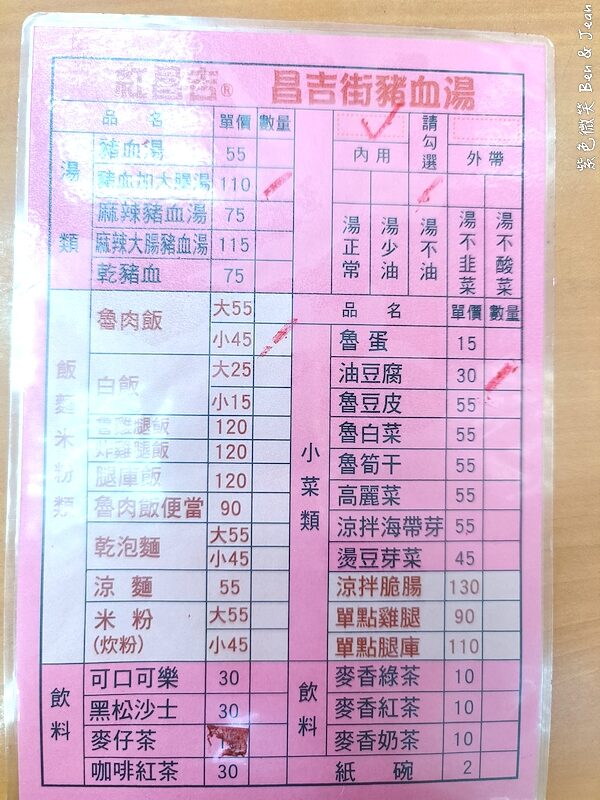 紅昌吉® 昌吉街豬血湯
品名 單價 數量
湯類
豬血湯 55
豬血加大腸湯 110
麻辣豬血湯 75
麻辣大腸豬血湯 115
乾豬血 75
請勾選
內用 外帶
湯正常 湯少油 湯不油 湯不韭菜 湯不酸菜
飯麵米粉類
魯肉飯 大55
小45
白飯 大25
小15
魯雞腿飯 120
炸雞腿飯 120
腿庫飯 120
魯肉飯便當 90
乾泡麵 大55
小45
涼麵 55
米粉 大55
(炊粉) 小45
品名 單價 數量
小菜類
魯蛋 15
油豆腐 30
魯豆皮 55
魯白菜 55
魯筍干 55
高麗菜 55
涼拌海帶芽 55
燙豆芽菜 45
涼拌脆腸 130
單點雞腿 90
單點腿庫 110
飲料
可口可樂 30
黑松沙士 30
麥仔茶
咖啡紅茶 30
飲料
麥香綠茶 10
麥香紅茶 10
麥香奶茶 10
紙碗 2
紫色微笑 Ben & Jean